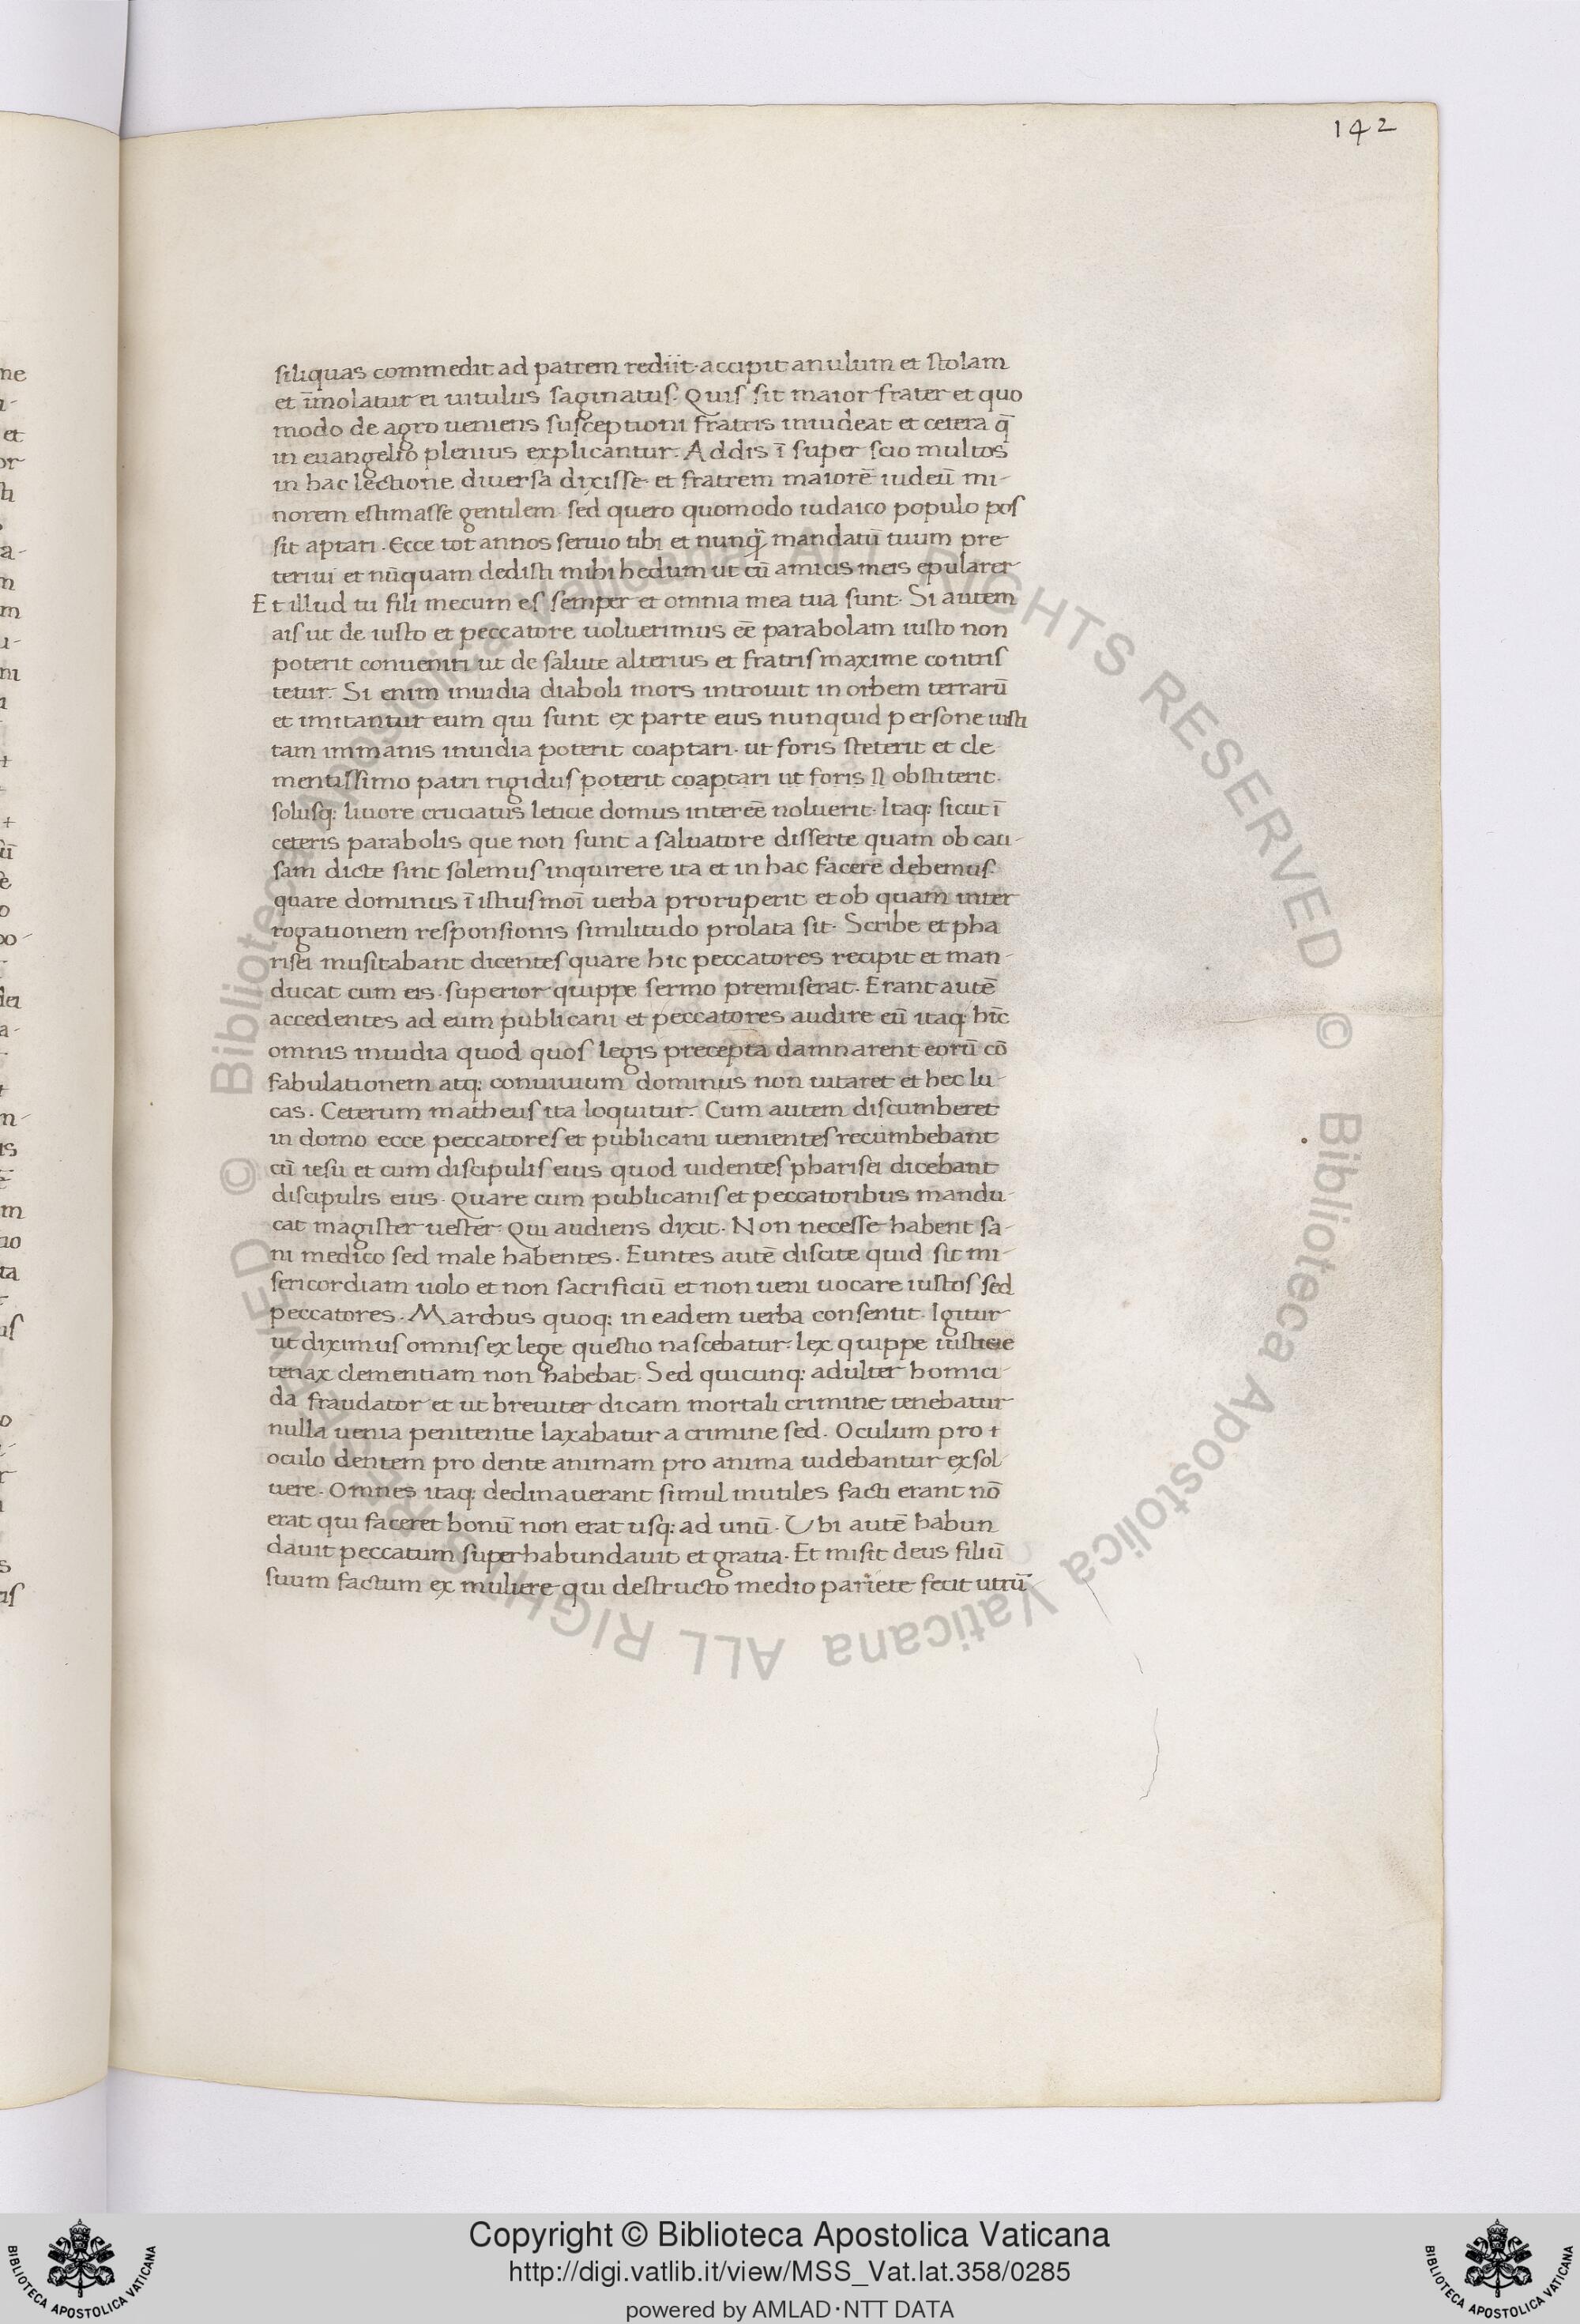 142
siliquas commedit ad patrem rediit. accipit anulum et stolam
et īmolatur ei uitulus saginatus. Quis sit maior frater et quo
modo de agro ueniens susceptioni fratris inuideat et cetera q̄
in euangelio plenius explicantur. Addis ī super scio multos
in hac lectione diuersa dixisse et fratrem maiorē iudeū mi-
norem estimasse gentilem sed quero quomodo iudaico populo pos
sit aptari. Ecce tot annos seruio tibi et nunq̄ mandatū tuum pre
teriui et nūquam dedisti mihi hedum ut cū amicis meis epularer
Et illud tu fili mecum es semper et omnia mea tua sunt. Si autem
ais ut de iusto et peccatore uoluerimus eē parabolam iusto non
poterit conueniri ut de salute alterius et fratris maxime contris
tetur. Si enim inuidia diaboli mors introiuit in orbem terrarū
et imitantur eum qui sunt ex parte eius nunquid persone iusti
tam immanis inuidia poterit coaptari. ut foris steterit et cle
mentissimo patri rigidus poterit coaptari ut foris obstiterit.
solusq: liuore cruciatus leticie domus intereē noluerit. Itaq: sicut ī
ceteris parabolis que non sunt a saluatore disserte quam ob cau-
sam dicte sint solemus inquirere ita et in hac facere debemus.
quare dominus ī istiusmoī uerba proruperit et ob quam inter
rogationem responsionis similitudo prolata sit. Scribe et pha
risei musitabant dicentes quare hic peccatores recipit et man-
ducat cum eis. superior quippe sermo premiserat. Erant autē
accedentes ad eum publicani et peccatores audire eū itaq: hīc
omnis inuidia quod quos legis precepta damnarent eorū cō
fabulationem atq: conuiuium dominus non uitaret et hec lu-
cas. Ceterum matheus ita loquitur. Cum autem discumberet
in domo ecce peccatores et publicani uenientes recumbebant
cū iesu et cum discipulis eius quod uidentes pharisei dicebant
discipulis eius. Quare cum publicanis et peccatoribus mandu-
cat magister uester. Qui audiens dixit. Non necesse habent sa-
ni medico sed male habentes. Euntes autē discite quid sit mi-
sericordiam uolo et non sacrificiū et non ueni uocare iustos sed
peccatores. Marchus quoq: in eadem uerba consentit. Igitur
ut diximus omnis ex lege questio nascebatur. lex quippe iusticie
tenax clementiam non habebat. Sed quicunq: adulter homici-
da fraudator et ut breuiter dicam mortali crimine tenebatur
nulla uenia penitentie laxabatur a crimine sed. Oculum pro
oculo dentem pro dente animam pro anima uidebantur exsol
uere. Omnes itaq: declinauerant simul inutiles facti erant nō
erat qui faceret bonū non erat usq: ad unū. Ubi autē habun
dauit peccatum superhabundauit et gratia. Et misit deus filiū
suum factum ex muliere qui destructo medio pariete fecit utrū
Copyright © Biblioteca Apostolica Vaticana
http://digi.vatlib.it/view/MSS_Vat.lat.358/0285
powered by AMLAD·NTT DATA